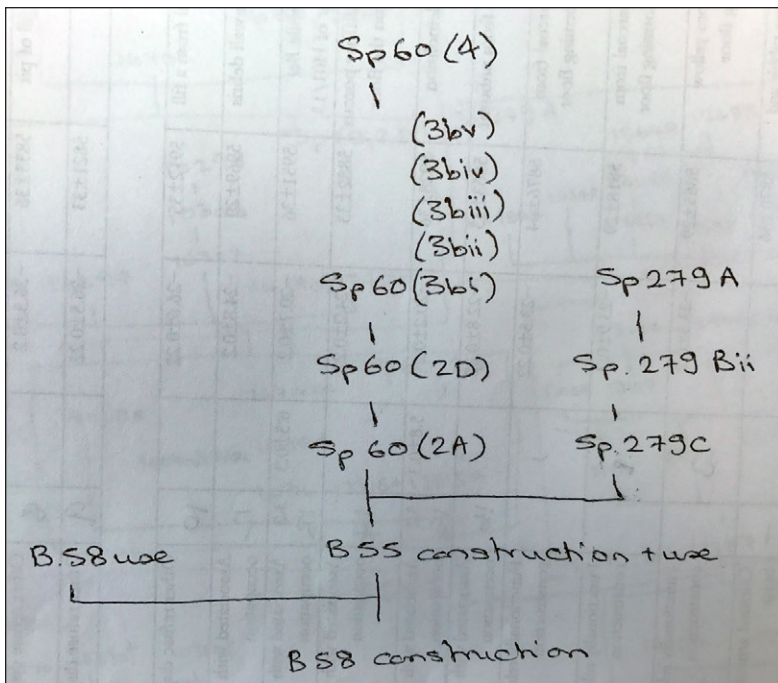 Sp60 (4)
(3bv)
(3biv)
(3biii)
(3bii)
Sp60 (3bi) Sp279A
Sp60 (2D) Sp.279 Bii
Sp60 (2A) Sp.279C
B.58 use B55 construction + use
B58 construction